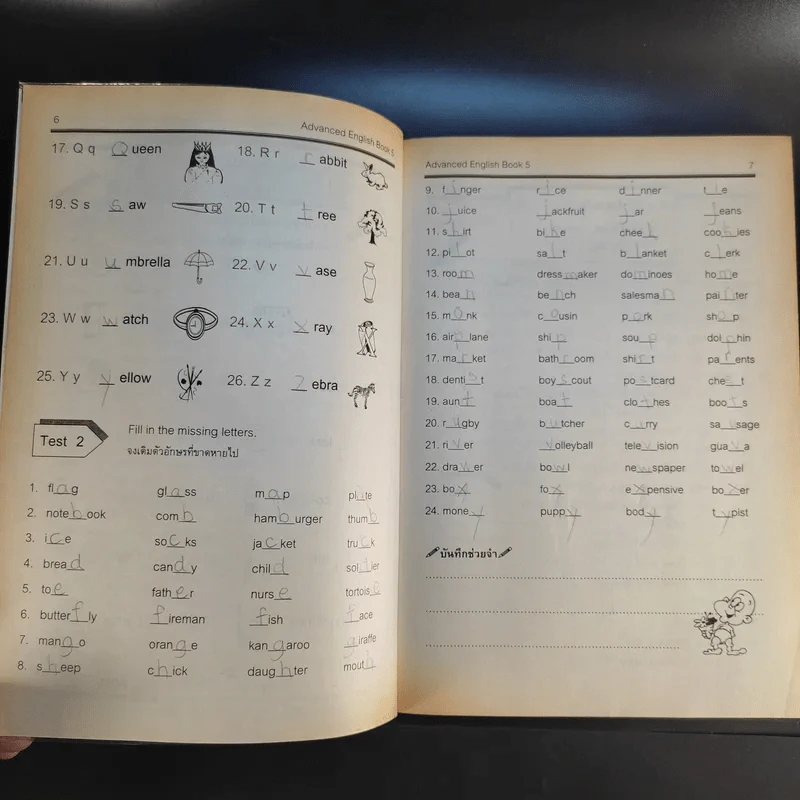 6
Advanced English Book 5
17. Q q Queen 18. R r rabbit
19. S s saw 20. T t tree
21. U u umbrella 22. V v vase
23. W w watch 24. X x x ray
25. Y y yellow 26. Z z Zebra
Test 2
Fill in the missing letters.
จงเติมตัวอักษรที่ขาดหายไป
1. flag glass map plate
2. notebook comb hamburger thumb
3. ice socks jacket truck
4. bread candy child soldier
5. toe father nurse tortoise
6. butterfly fireman fish face
7. mango orange kangaroo giraffe
8. sheep chick daughter mouth
Advanced English Book 5 7
9. finger rice dinner tie
10. juice jackfruit jar jeans
11. shirt bike cheek cookies
12. pilot salt blanket clerk
13. room dressmaker dominoes home
14. bean bench salesman painter
15. monk cousin pork shop
16. airplane ship soup dolphin
17. market bathroom shirt parents
18. dentist boyscout postcard chest
19. aunt boat clothes boots
20. rugby butcher curry sausage
21. river volleyball television guava
22. drawer bowl newspaper towel
23. box fox expensive boxer
24. money puppy body typist
บันทึกช่วยจำ